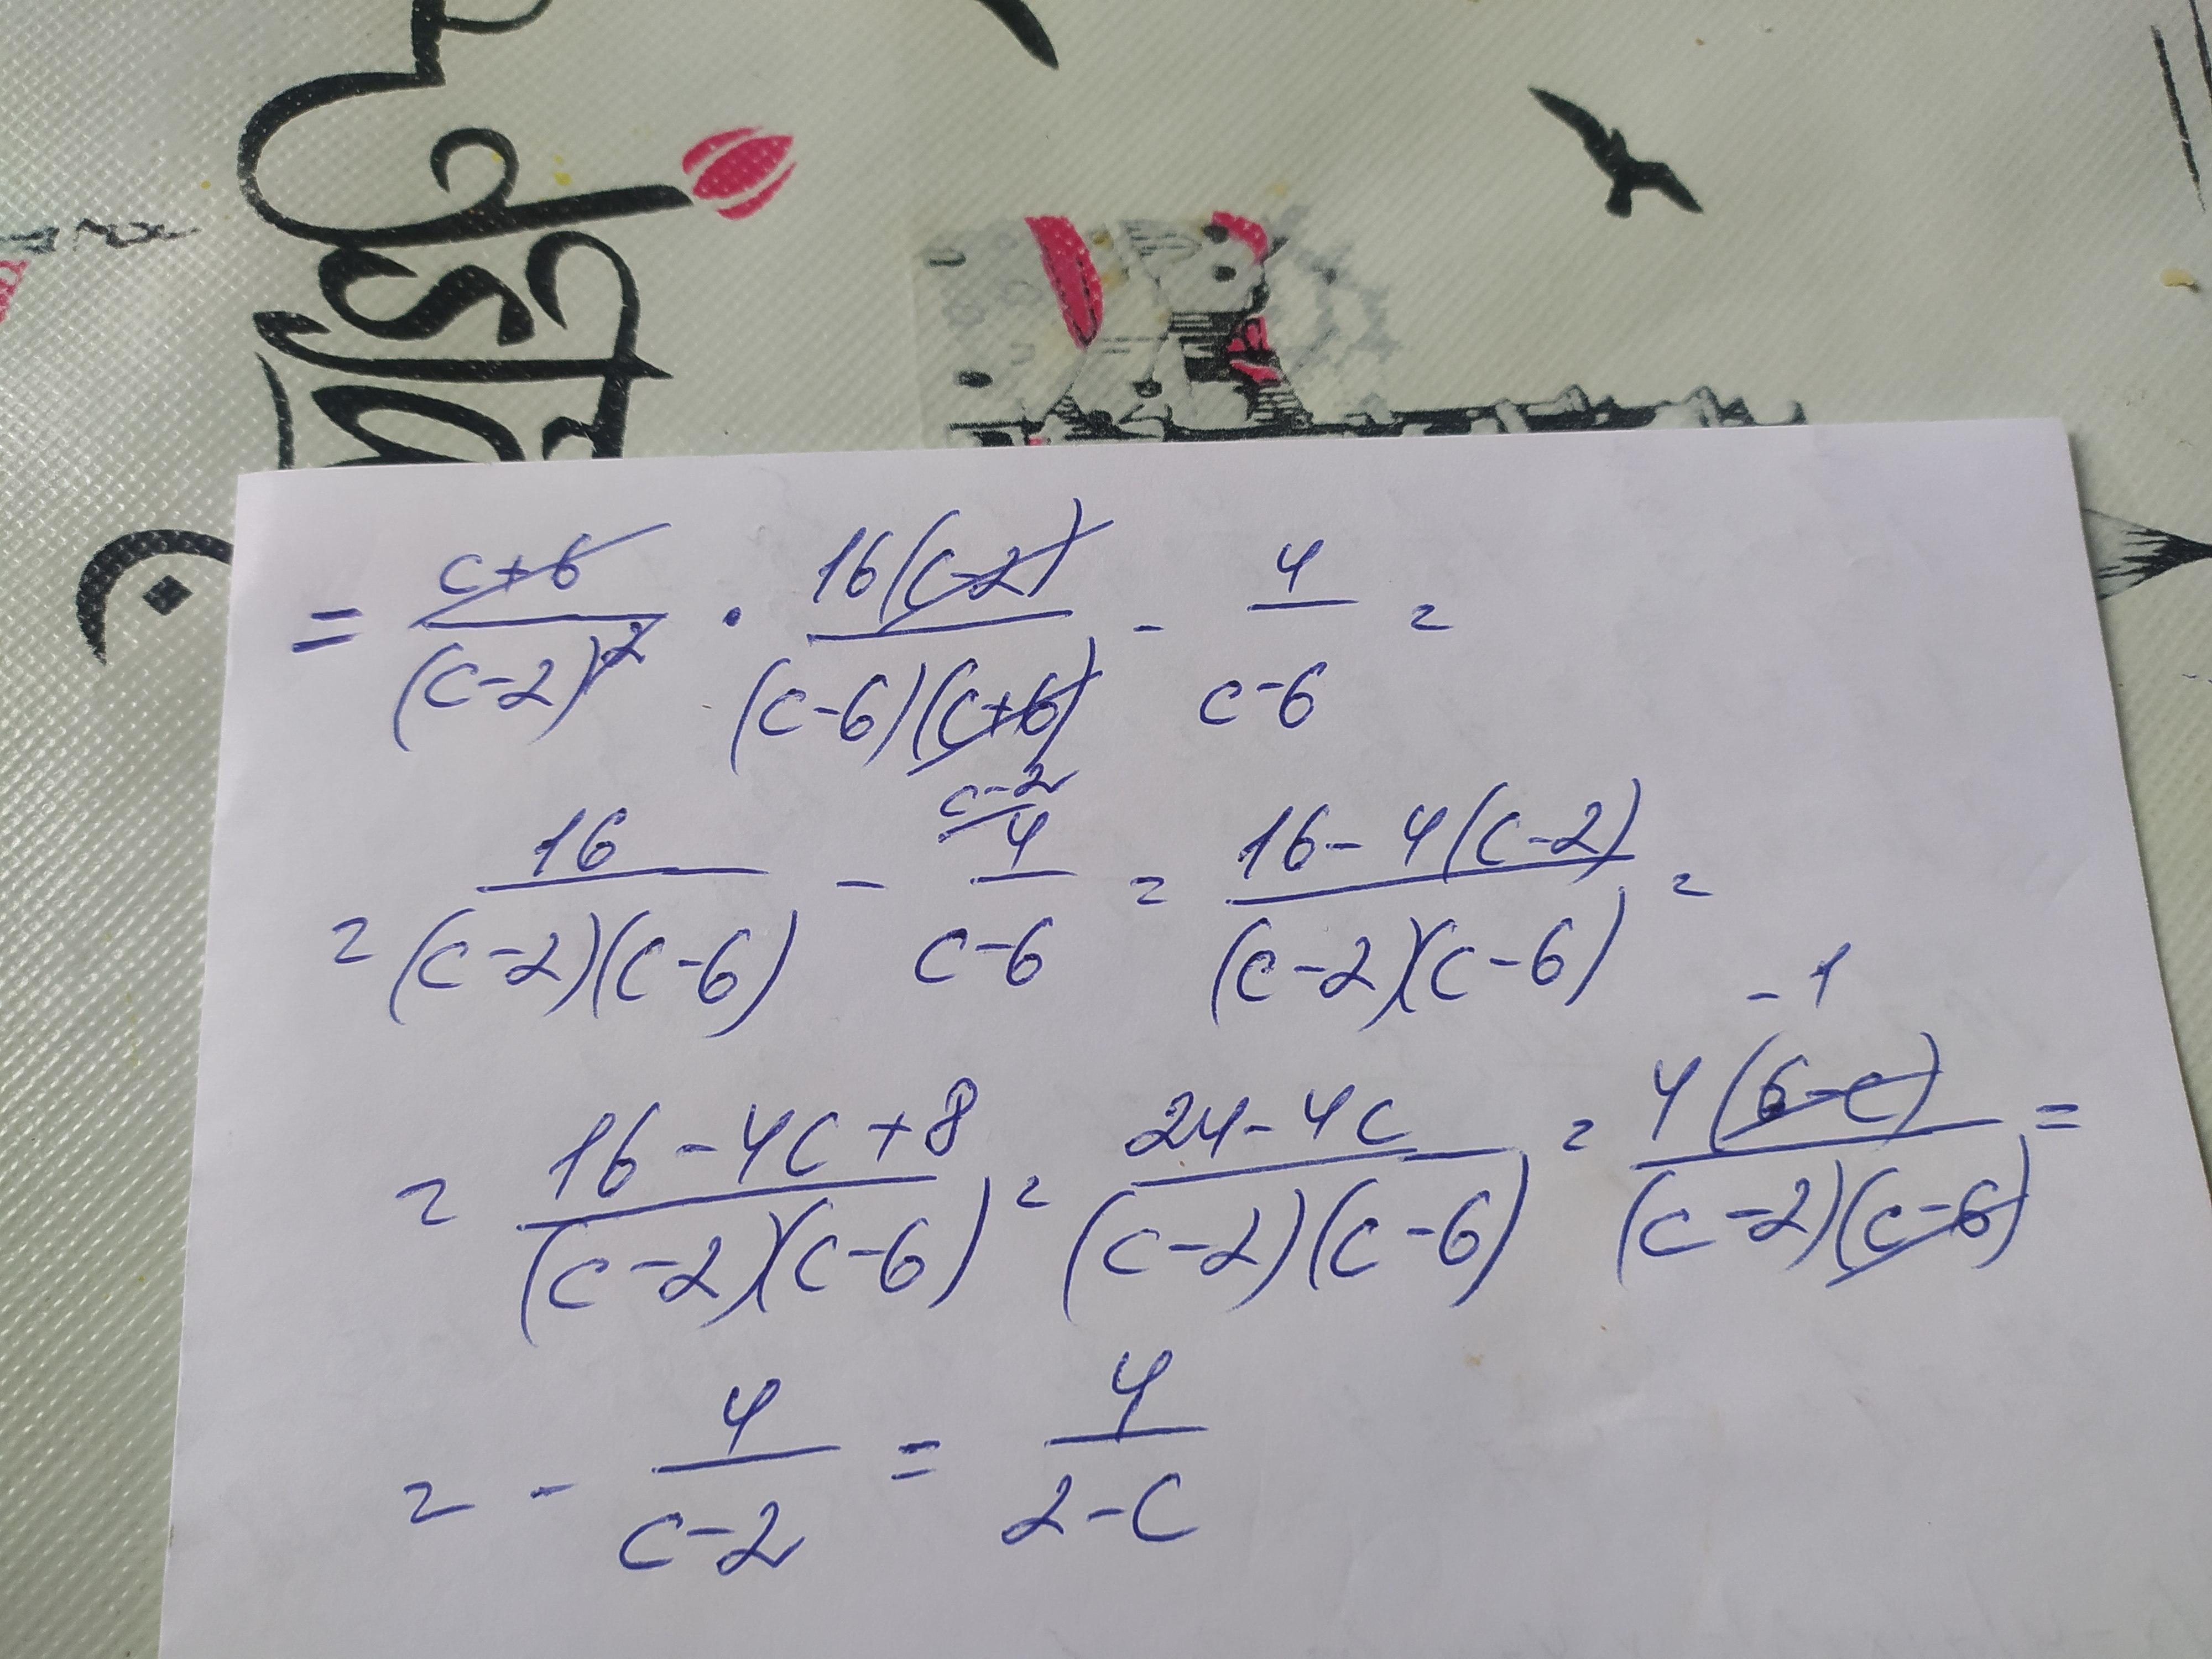 = c+6/(c-2)² · 16(c-2)/(c-6)(c+6) - 4/c-6 =
= 16/(c-2)(c-6) - c-2/4/c-6 = 16-4(c-2)/(c-2)(c-6) =
= 16-4c+8/(c-2)(c-6) = 24-4c/(c-2)(c-6) = -1 4(6-c)/(c-2)(c-6) =
= - 4/c-2 = 4/2-c